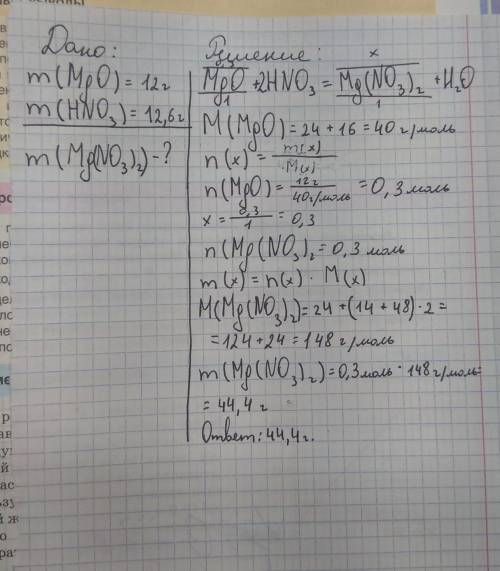 Дано:
m(MgO) = 12г
m(HNO₃) = 12,6г
m(Mg(NO₃)₂) - ?
Решение:
x
MgO + 2HNO₃ = Mg(NO₃)₂ + H₂O
1 1
M(MgO) = 24 + 16 = 40 г/моль
n(x) = m(x) / M(x)
n(MgO) = 12г / 40г/моль = 0,3 моль
x = 0,3 / 1 = 0,3
n(Mg(NO₃)₂ = 0,3 моль
m(x) = n(x) · M(x)
M(Mg(NO₃)₂) = 24 + (14 + 48) · 2 =
= 124 + 24 = 148 г/моль
m(Mg(NO₃)₂) = 0,3 моль · 148 г/моль =
= 44,4 г
Ответ: 44,4 г.